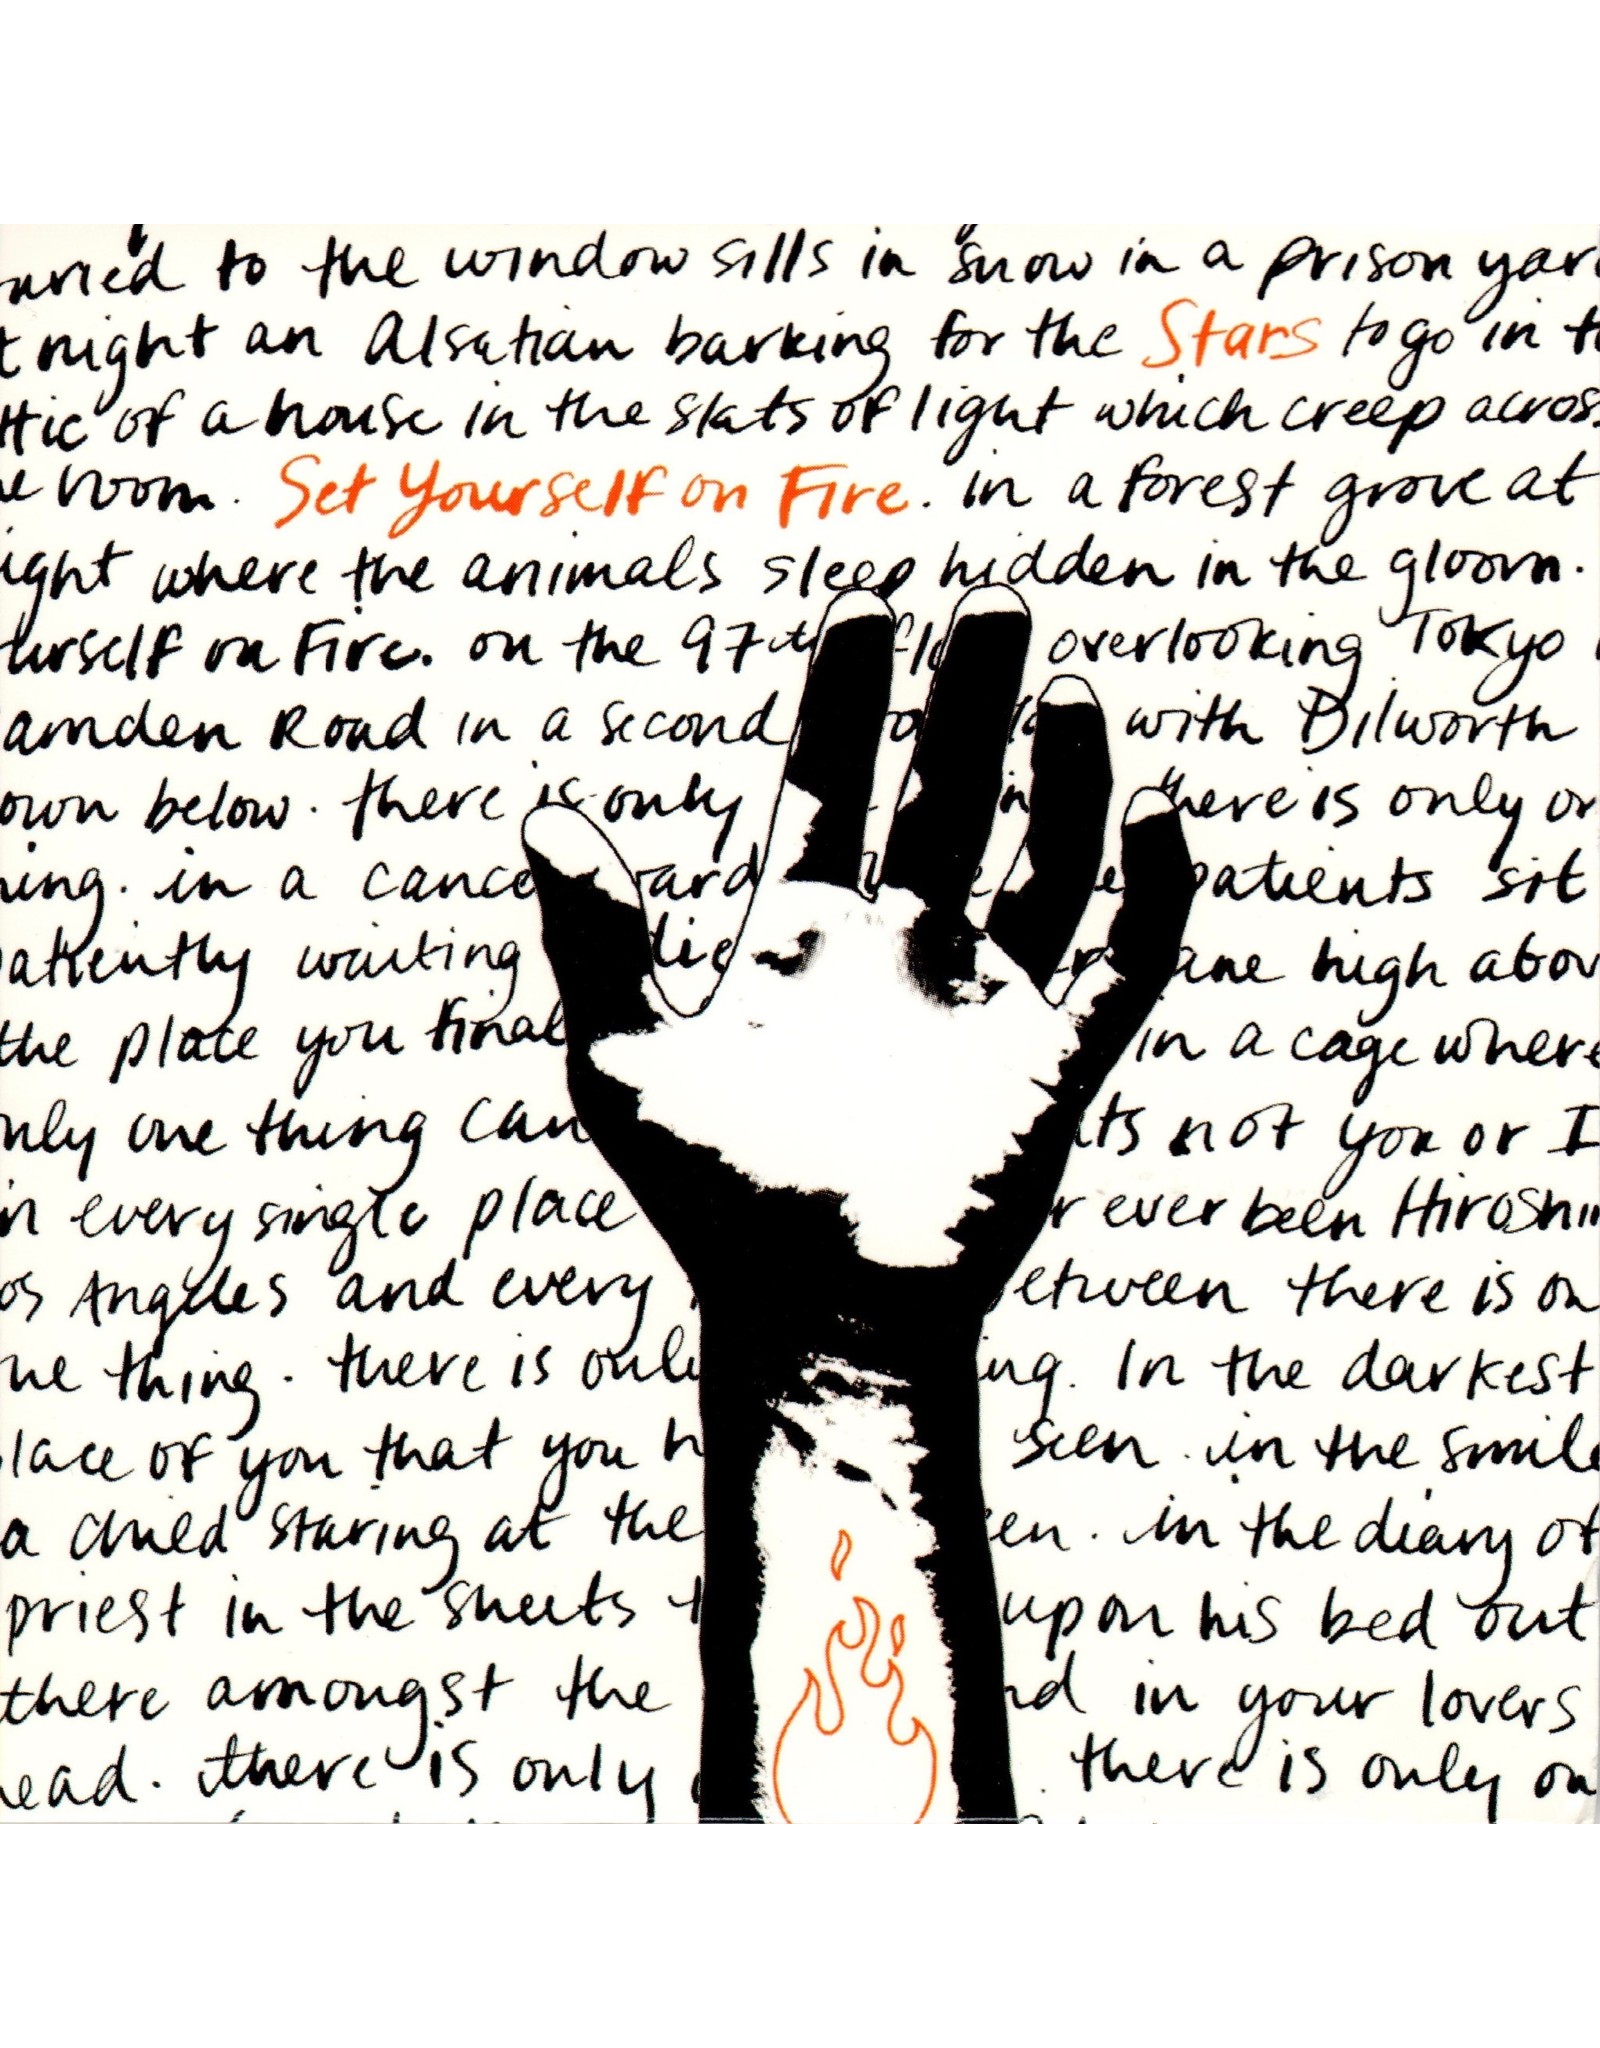 uried to the window sills in snow in a prison yar
t night an Alsatian barking for the Stars to go in t
ttic of a house in the slats of light which creep across
e room. Set Yourself on Fire. in a forest grove at
ight where the animals sleep hidden in the gloom.
urself on Fire. on the 97th flo overlooking Tokyo
amden Road in a second with Dilworth
own below. there is only in there is only on
ning. in a cance ward patients sit
patiently waiting die ane high abov
the place you final in a cage where
nly one thing can its not you or I
in every single place r ever been Hiroshi
os Angeles and every etween there is on
ne thing. there is only ing. In the darkest
lace of you that you h seen. in the smile
a child staring at the en. in the diary of
priest in the sheets t upon his bed out
there amongst the nd in your lovers
ead. there is only there is only on